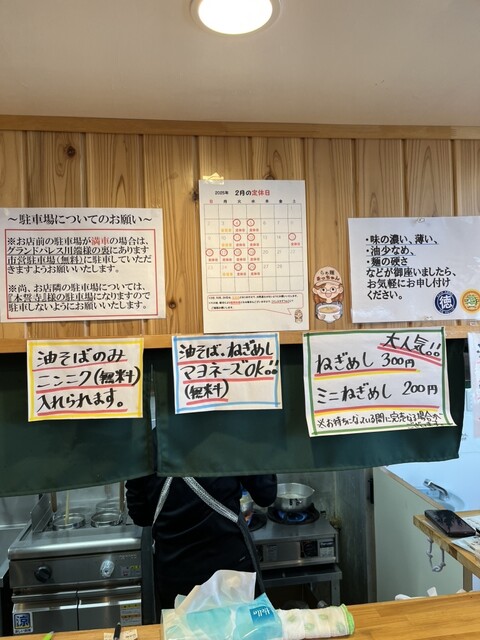 ～駐車場についてのお願い～
※お店前の駐車場が満車の場合は、
グランドパレス川端様の裏にあります
市営駐車場(無料)に駐車していただ
きますようお願いいたします。
※尚、お店隣の駐車場については、
『本誓寺』様の駐車場になりますので
駐車しないようにお願いいたします。
2025年 2月の定休日
・味の濃い、薄い、
・油少なめ、
・麺の硬さ
などが御座いましたら、
お気軽にお申し付け
ください。
油そばのみ
ニンニク(無料)
入れられます。
油そば、ねぎめし
マヨネーズOK!!
(無料)
大人気!!
ねぎめし 300円
ミニねぎめし 200円
※お待ちになっている間に完売になる場合が